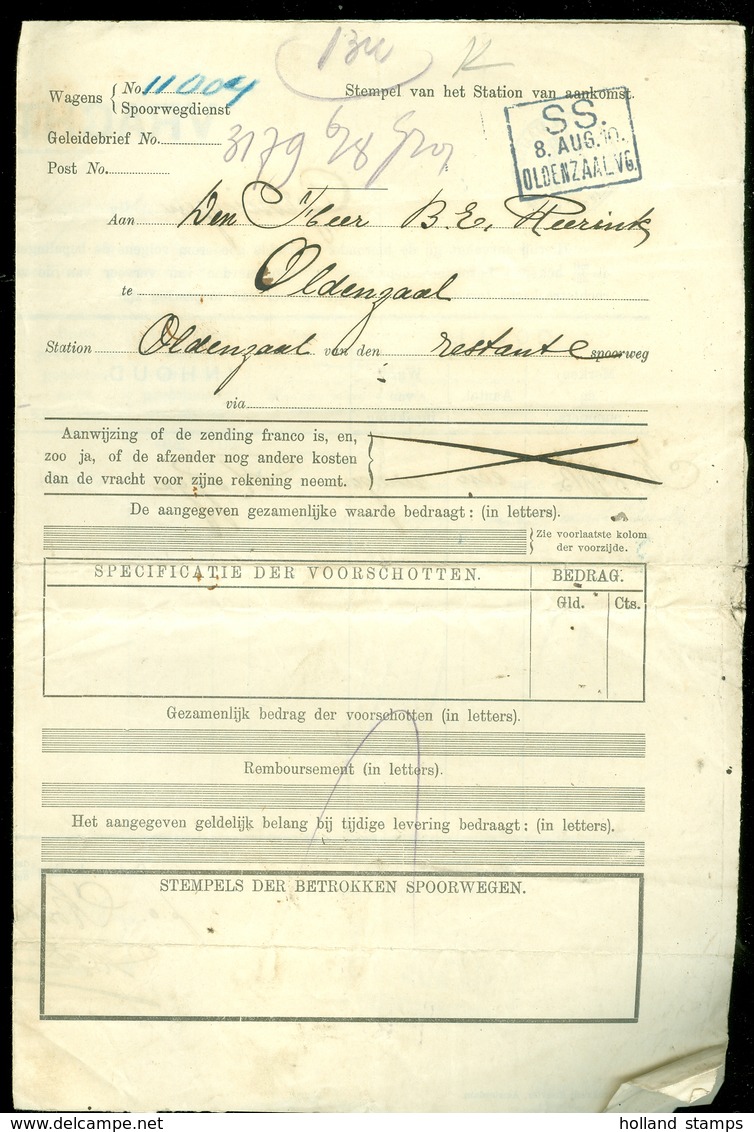 Wagens { No. 11004
Spoorwegdienst
Stempel van het Station van aankomst.
Geleidebrief No. 3179 6/8
Post No.
SS.
8. AUG. 10.
OLDENZAAL VG.
Aan Den Heer B. E. Heerink
te Oldenzaal
Station Oldenzaal van den restante spoorweg
via
Aanwijzing of de zending franco is, en,
zoo ja, of de afzender nog andere kosten
dan de vracht voor zijne rekening neemt.
De aangegeven gezamenlijke waarde bedraagt: (in letters).
Zie voorlaatste kolom
der voorzijde.
SPECIFICATIE DER VOORSCHOTTEN. BEDRAG.
Gld. Cts.
Gezamenlijk bedrag der voorschotten (in letters).
Remboursement (in letters).
Het aangegeven geldelijk belang bij tijdige levering bedraagt: (in letters).
STEMPELS DER BETROKKEN SPOORWEGEN.
holland stamps